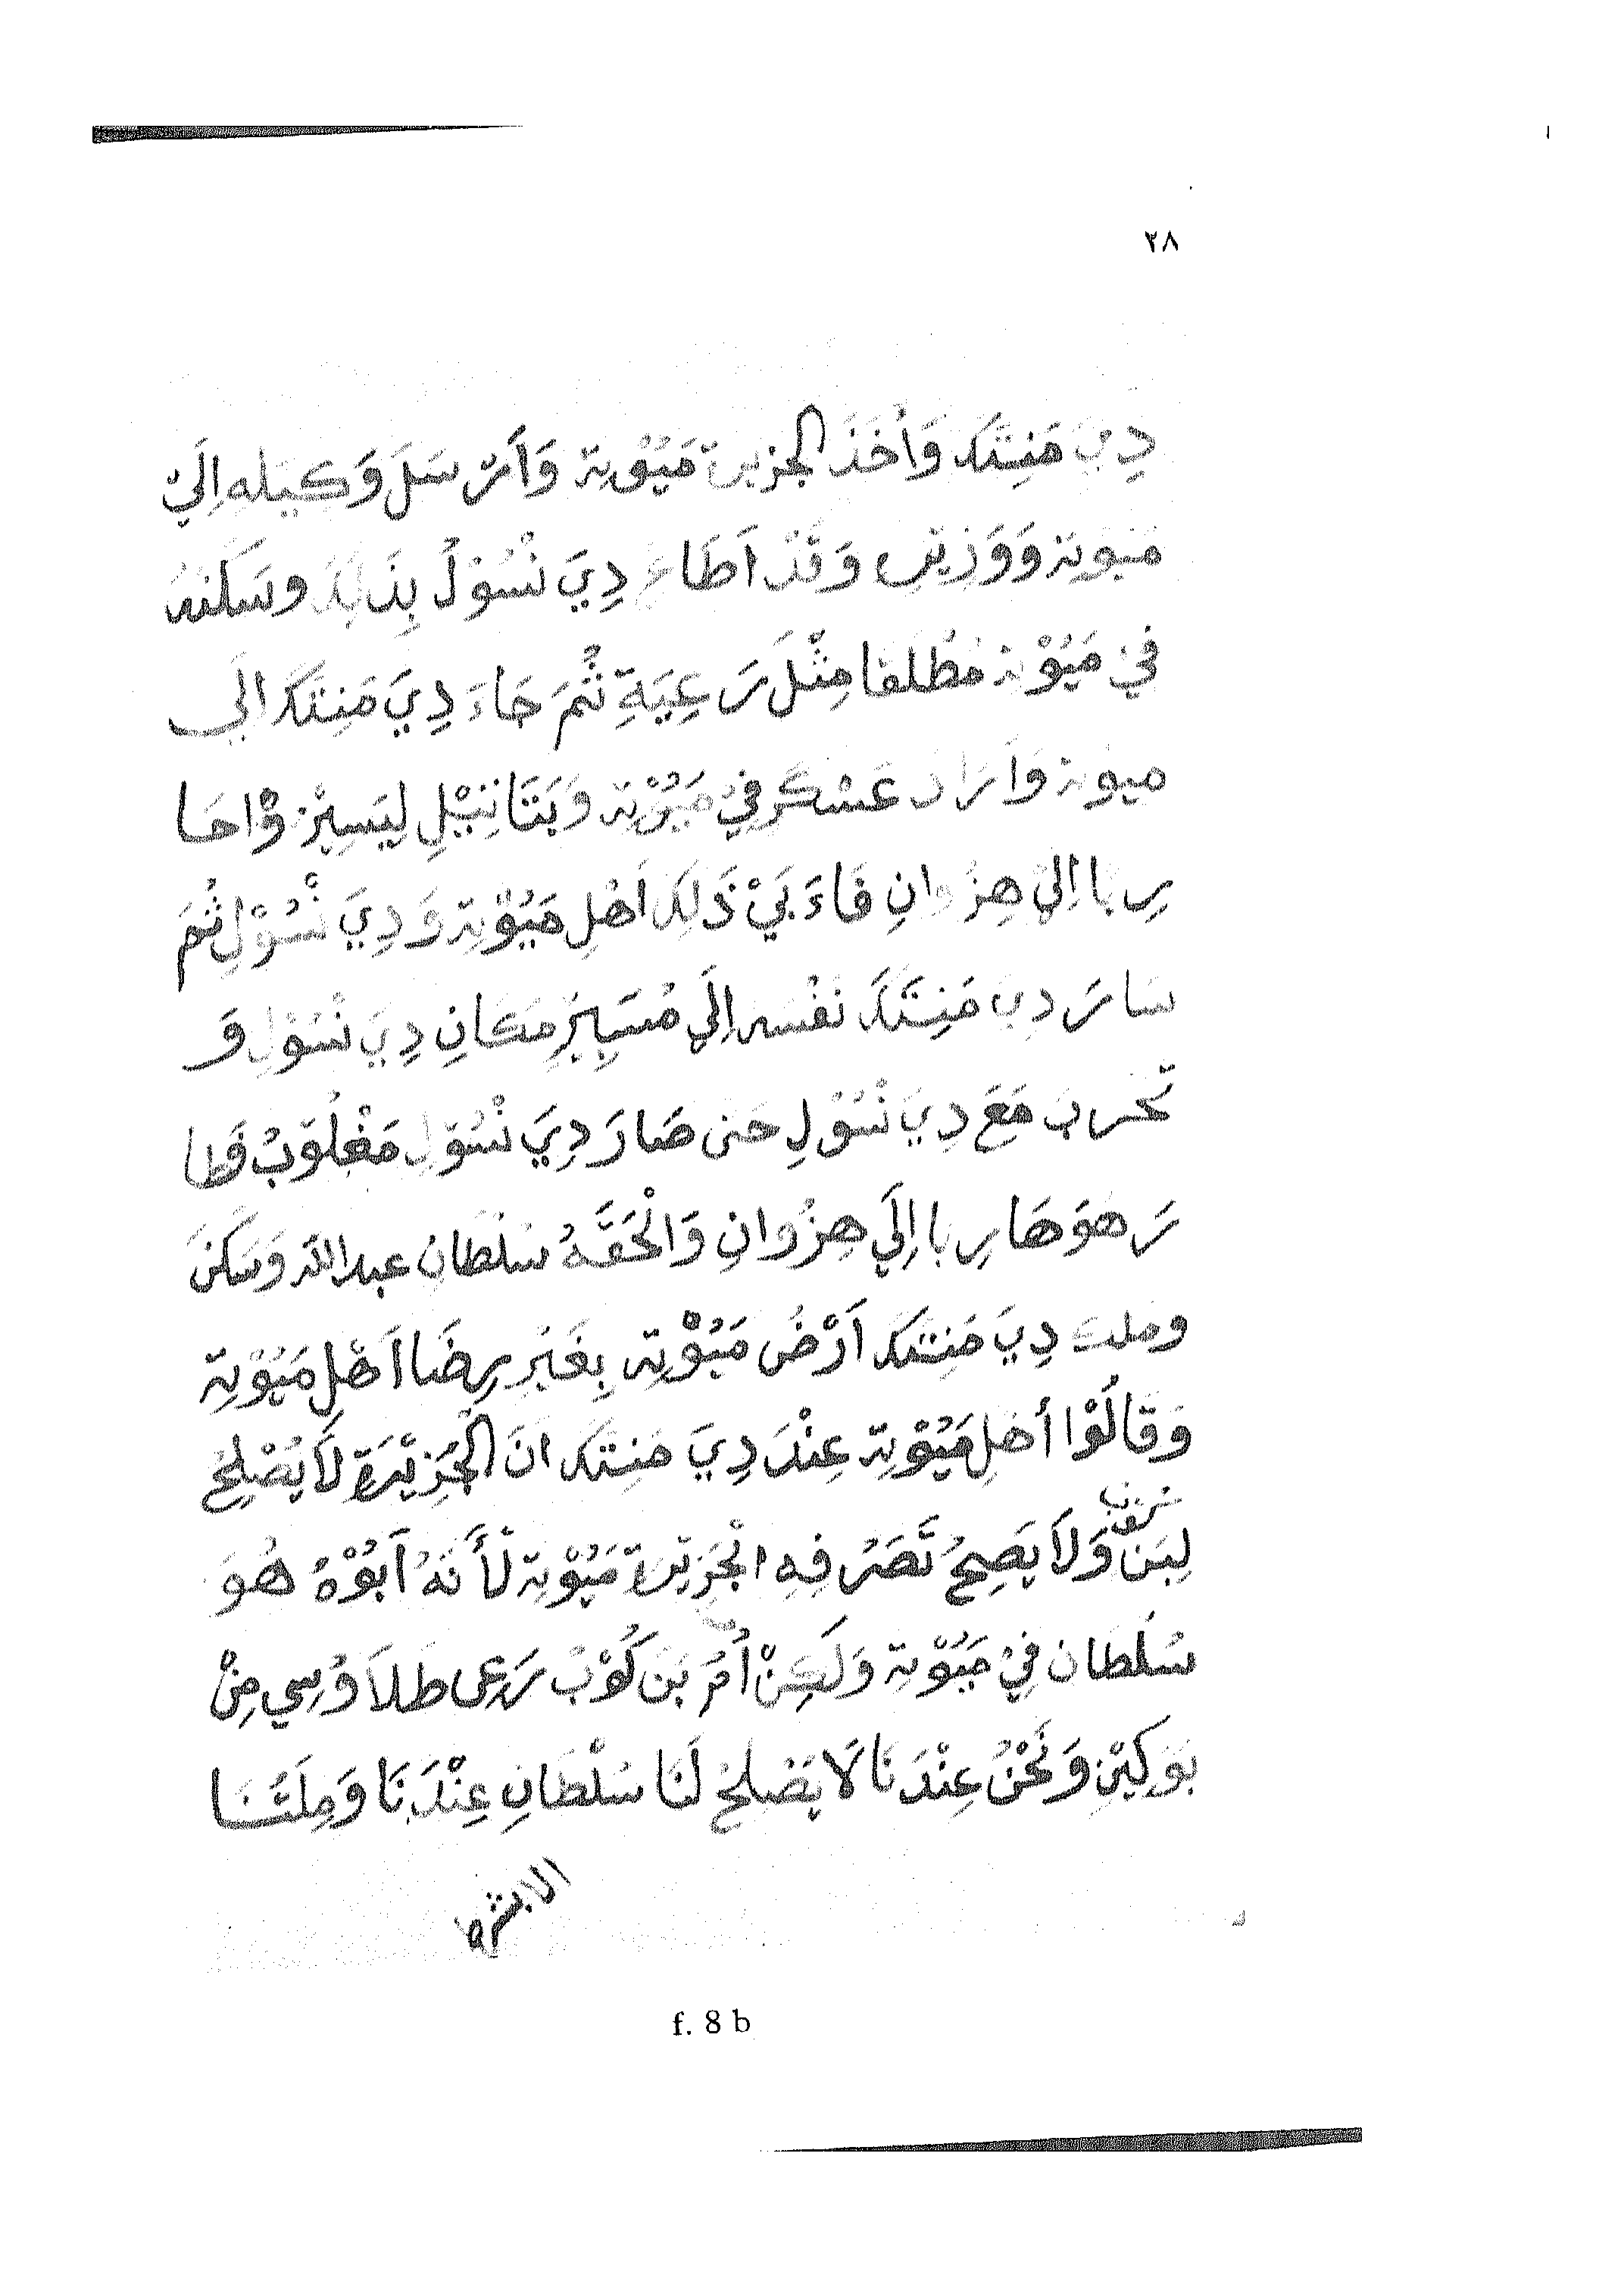 ٢٨
دِيَ مَنِتَكَ وَأَخَذَ الجزيرة مَيُوْتة وَأَرْسَلَ وَكِيلَه اِلَيْ
مَيوتة وَوَزِيرِ وَقَدْ اَطَاعَ دِيَ نْسُوْلُ بِذَلِكَ وسَكَنَهُ
فِيْ مَيُوْتة مُطْلَقا مِثْلَ رَعِيَةِ ثُمَ جَاءَ دِيَ مَنِتَكَ الَي
ميوتة وَاَرَادَ عَسْكَر فِيْ مَيُوْتة وَ لِيَسِيْرُ
رِبا اِلَيْ هِزُوانِ فَاءَبَيْ ذَلِكَ اَهْلِ مَيُوْتة وَدِيَ نْسُوْلِ ثُمَ
سَارَ دِيَ مَنِتَكَ نَفْسه اِلَي مُسَبِيْرِ مَكَانِ دِيَ نْسُوْلِ وَ
تَحَرَبَ مَعَ دِيَ نْسُوْلِ حَتى صَارَ دِيَ نْسُوْلِ مَغْلُوْبُ فَطا
رَ هوَ هَارِبا اِلَي هِزُوانِ وَالْحَقَّهُ سُلْطَانُ عبدالله وَسَكَنَ
وملك دِيَ مَنِتَكَ اَرْضُ مَيُوْتة بِغَيْرِ رِضَا اَهْلِ مَيُوْتة
وَقَالُوْا أَهْلِ مَيُوْتة عِنْدَ دِيَ مَنِتَكَ انَ الْجَزِيْرَةِ لَا يُصْلِحُ
لِبَنَ وَلَا يَصِحُ تَصَرُفِهِ الْجَزِيْرَة مَيُوْتة لَأَنَهُ اَبُوْهُ هُوَ
سُلْطان فِيْ مَيُوْتة وَلَكِنْ اُمُ بَنَ كُوْبُ مِنْ
بَوَكِيْنِ وَنَحْنُ عِنْدَنَا لَا يَصْلِحُ لَنَا سُلْطَانِ عِنْدَنَا وَمِلَتُنَا
الا بشرط
f. 8 b